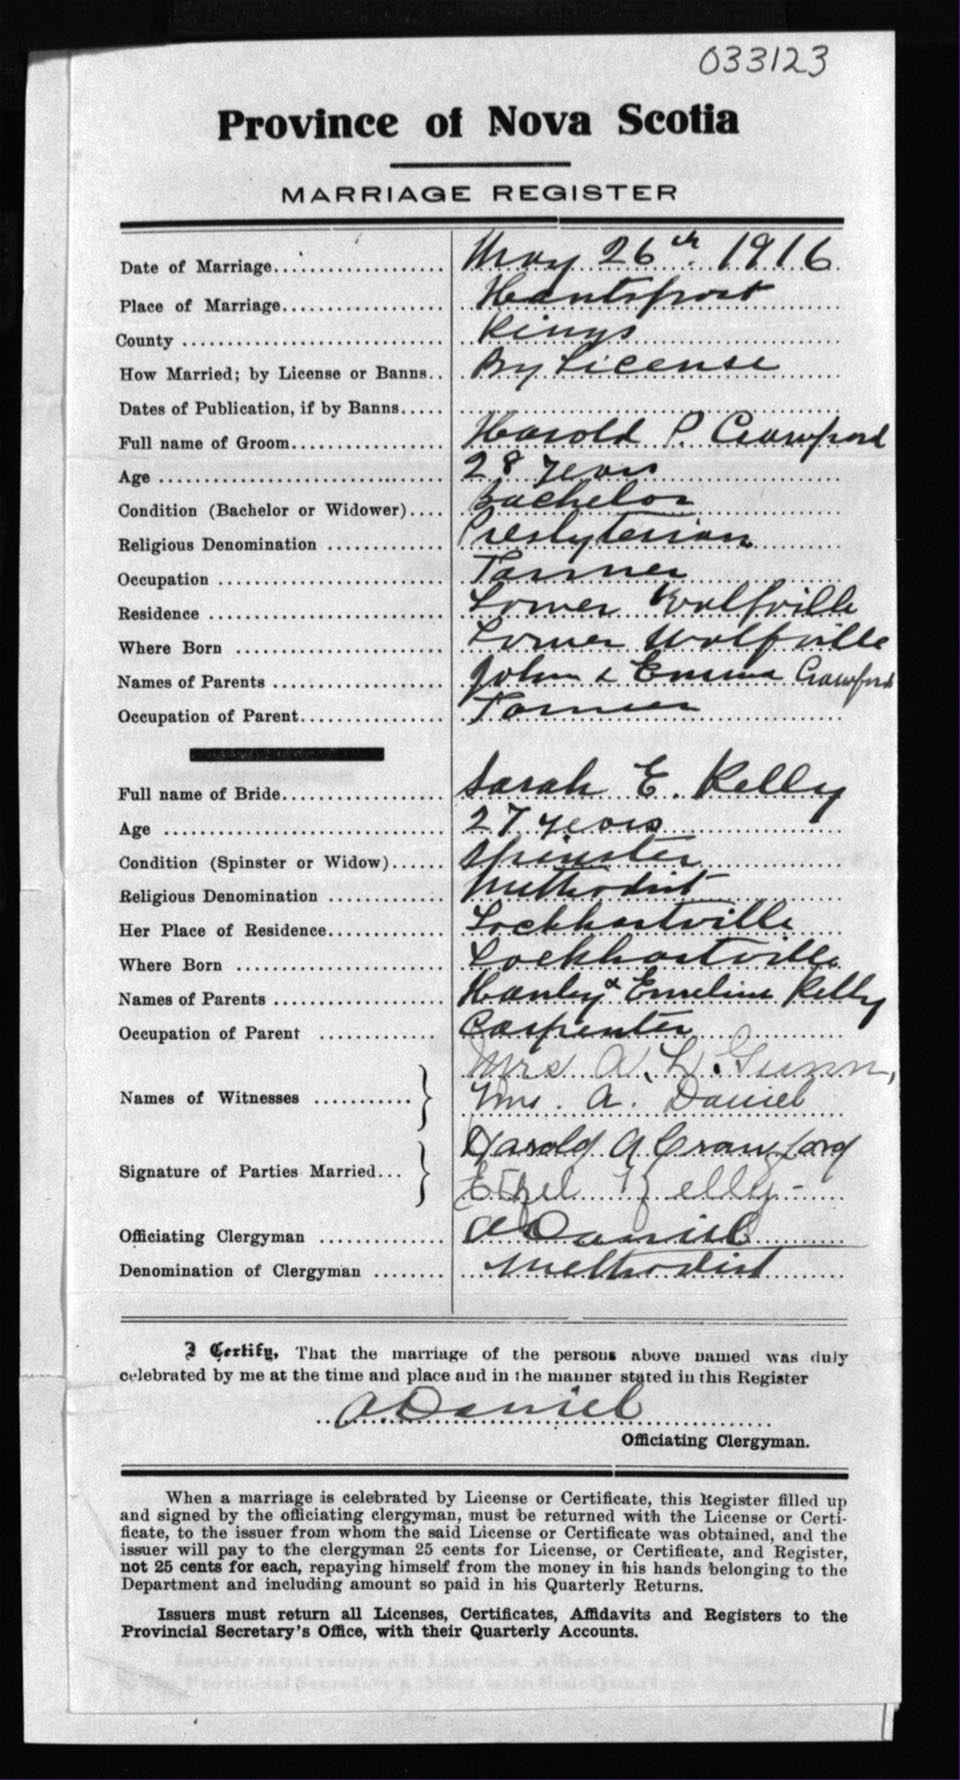 033123
Province of Nova Scotia
MARRIAGE REGISTER
Date of Marriage................... May 26th. 1916
Place of Marriage.................. Hantsport
County ............................. Kings
How Married; by License or Banns.. By License
Dates of Publication, if by Banns.....
Full name of Groom................. Harold P. Crawford
Age ................................ 28 years
Condition (Bachelor or Widower).... Bachelor
Religious Denomination ............. Presbyterian
Occupation ......................... Farmer
Residence .......................... Lower Wolfville
Where Born ........................ Lower Wolfville
Names of Parents ................... John & Emma Crawford
Occupation of Parent................ Farmer
Full name of Bride.................. Sarah E. Kelly
Age ............................... 27 years
Condition (Spinster or Widow)...... Spinster
Religious Denomination ............. Methodist
Her Place of Residence............. Lockhartville
Where Born ........................ Lockhartville
Names of Parents ................... Hanley & Emeline Kelly
Occupation of Parent .............. Carpenter
Mrs A. L. Gunn,
Names of Witnesses ........... } Mrs. A. Daniel
Harold A Crawford
Signature of Parties Married... } Ethel Kelly-
Officiating Clergyman .............. A Daniel
Denomination of Clergyman ........ Methodist
I Certify, That the marriage of the persons above named was duly
celebrated by me at the time and place and in the manner stated in this Register
A Daniel
Officiating Clergyman.
When a marriage is celebrated by License or Certificate, this Register filled up
and signed by the officiating clergyman, must be returned with the License or Certi-
ficate, to the issuer from whom the said License or Certificate was obtained, and the
issuer will pay to the clergyman 25 cents for License, or Certificate, and Register,
not 25 cents for each, repaying himself from the money in his hands belonging to the
Department and including amount so paid in his Quarterly Returns.
Issuers must return all Licenses, Certificates, Affidavits and Registers to the
Provincial Secretary's Office, with their Quarterly Accounts.